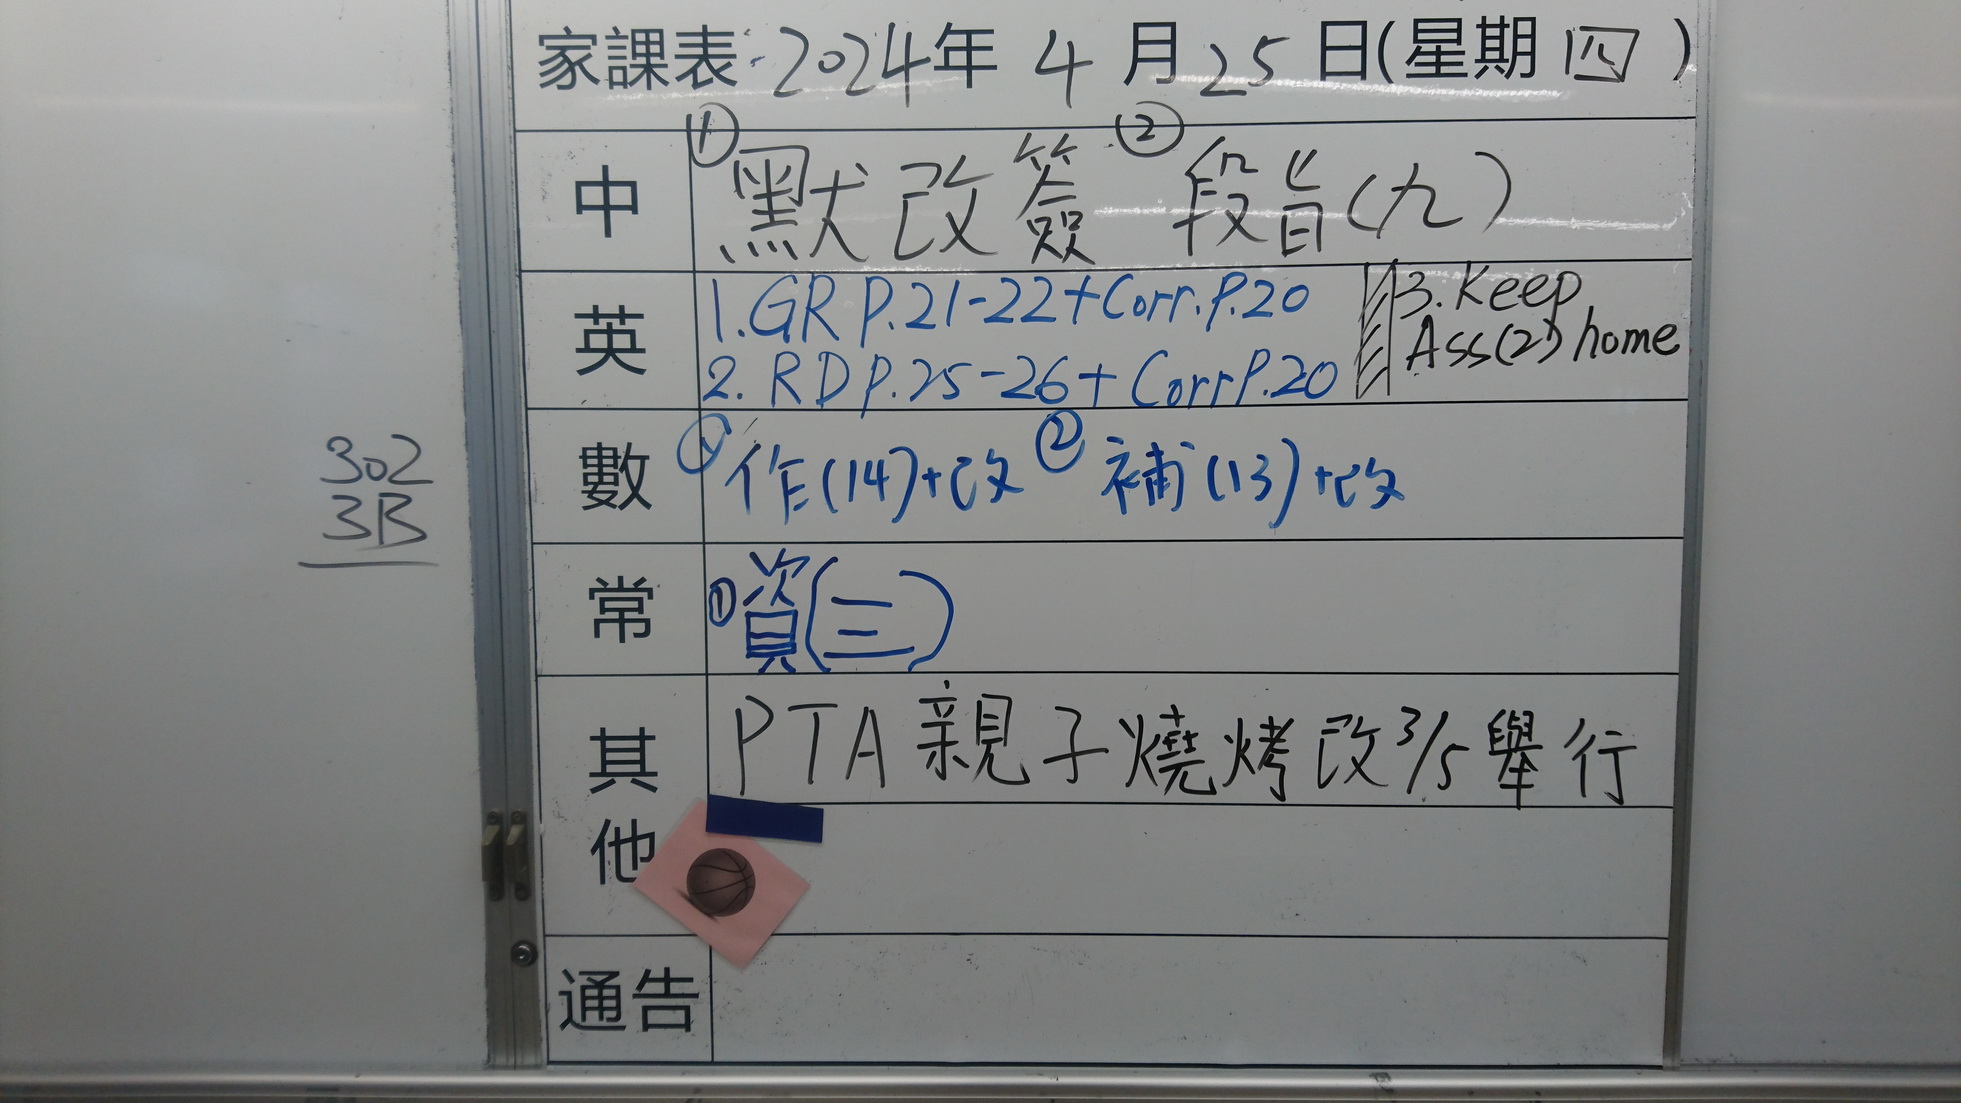 家課表: 2024年 4 月 25 日(星期 四 )
中 ① 默改簽 ② 段旨(九)
英 1. GR P.21-22+Corr.P.20
2. RD P.25-26+ Corr P.20
3. Keep
Ass(2) home
數 ① 作(14)+改 ② 補(13)+改
常 ① 資(三)
其他 PTA 親子燒烤改 3/5 舉行
通告
302
3B